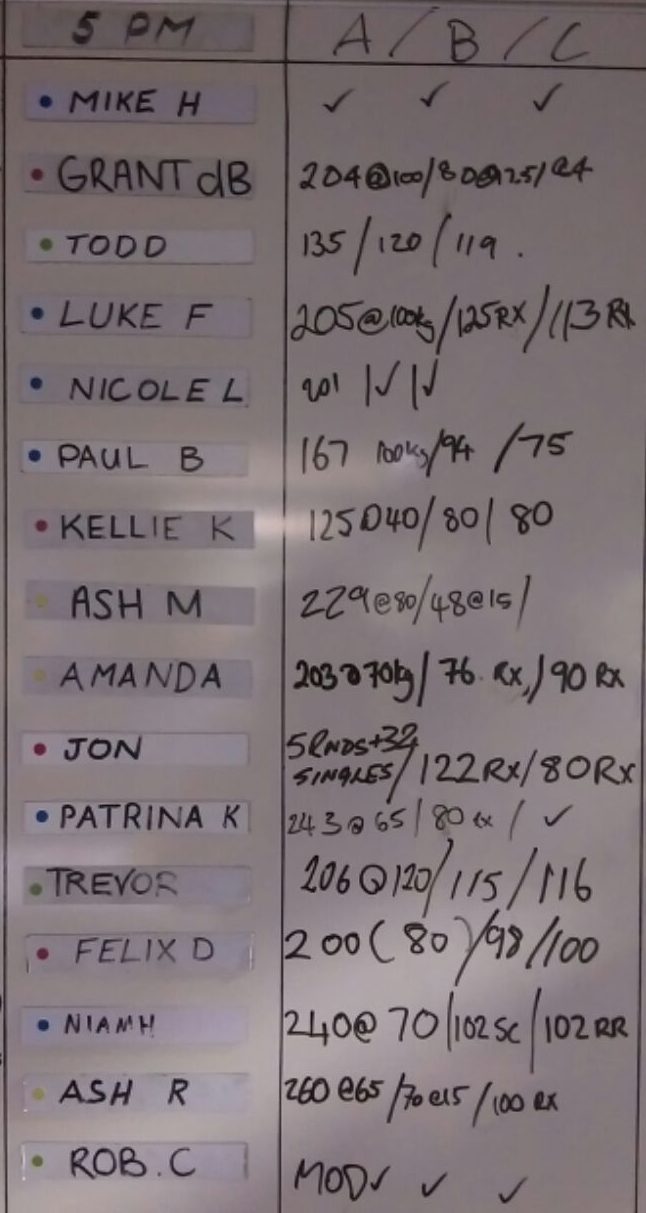 5 PM A / B / C
• MIKE H ✓ ✓ ✓
• GRANT dB 204@100/80@12.5/
• TODD 135/120/119.
• LUKE F 205@100kg/125RX/113 RX
• NICOLE L 201 |✓|✓
• PAUL B 167 100kg/94 /75
• KELLIE K 125@40/80/80
• ASH M 229@80/48@15/
• AMANDA 203@70kg/76 RX/90 RX
• JON 5RNDS+32
SINGLES/122RX/80RX
• PATRINA K 243@65/80 RX/ ✓
• TREVOR 206@120/115/116
• FELIX D 200(80)/98/100
• NIAMH 240@70/102SC/102RR
• ASH R 260@65/70@15/100 RX
• ROB.C MOD✓ ✓ ✓